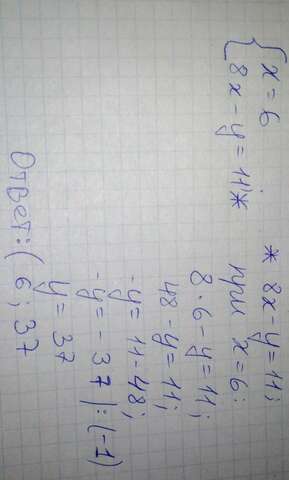 { x = 6
8x - y = 11*
* 8x - y = 11;
при x = 6:
8 · 6 - y = 11;
48 - y = 11;
-y = 11 - 48;
-y = - 37 | : (-1)
y = 37
Ответ: ( 6 ; 37